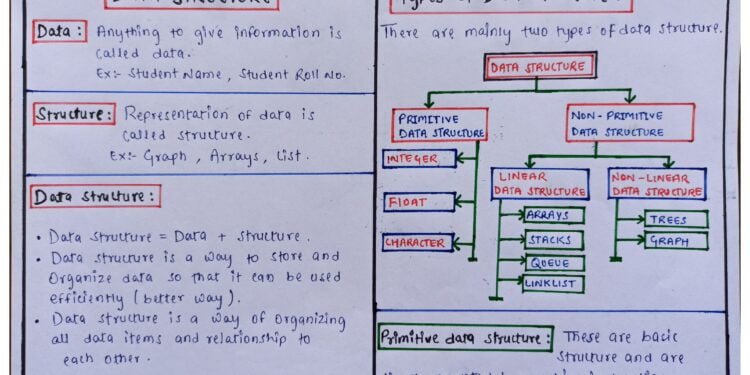 Data : Anything to give information is
called data.
Ex:- Student Name, Student Roll No.
Structure : Representation of data is
called structure.
Ex:- Graph, Arrays, List.
Data structure :
• Data structure = Data + structure.
• Data structure is a way to store and
Organize data so that it can be used
efficiently (better way).
• Data structure is a way of organizing
all data items and relationship to
each other.
There are mainly two types of data structure.
DATA STRUCTURE
PRIMITIVE
DATA STRUCTURE
INTEGER
FLOAT
CHARACTER
NON-PRIMITIVE
DATA STRUCTURE
LINEAR
DATA STRUCTURE
ARRAYS
STACKS
QUEUE
LINKLIST
NON-LINEAR
DATA STRUCTURE
TREES
GRAPH
Primitive data structure : These are basic
structure and are